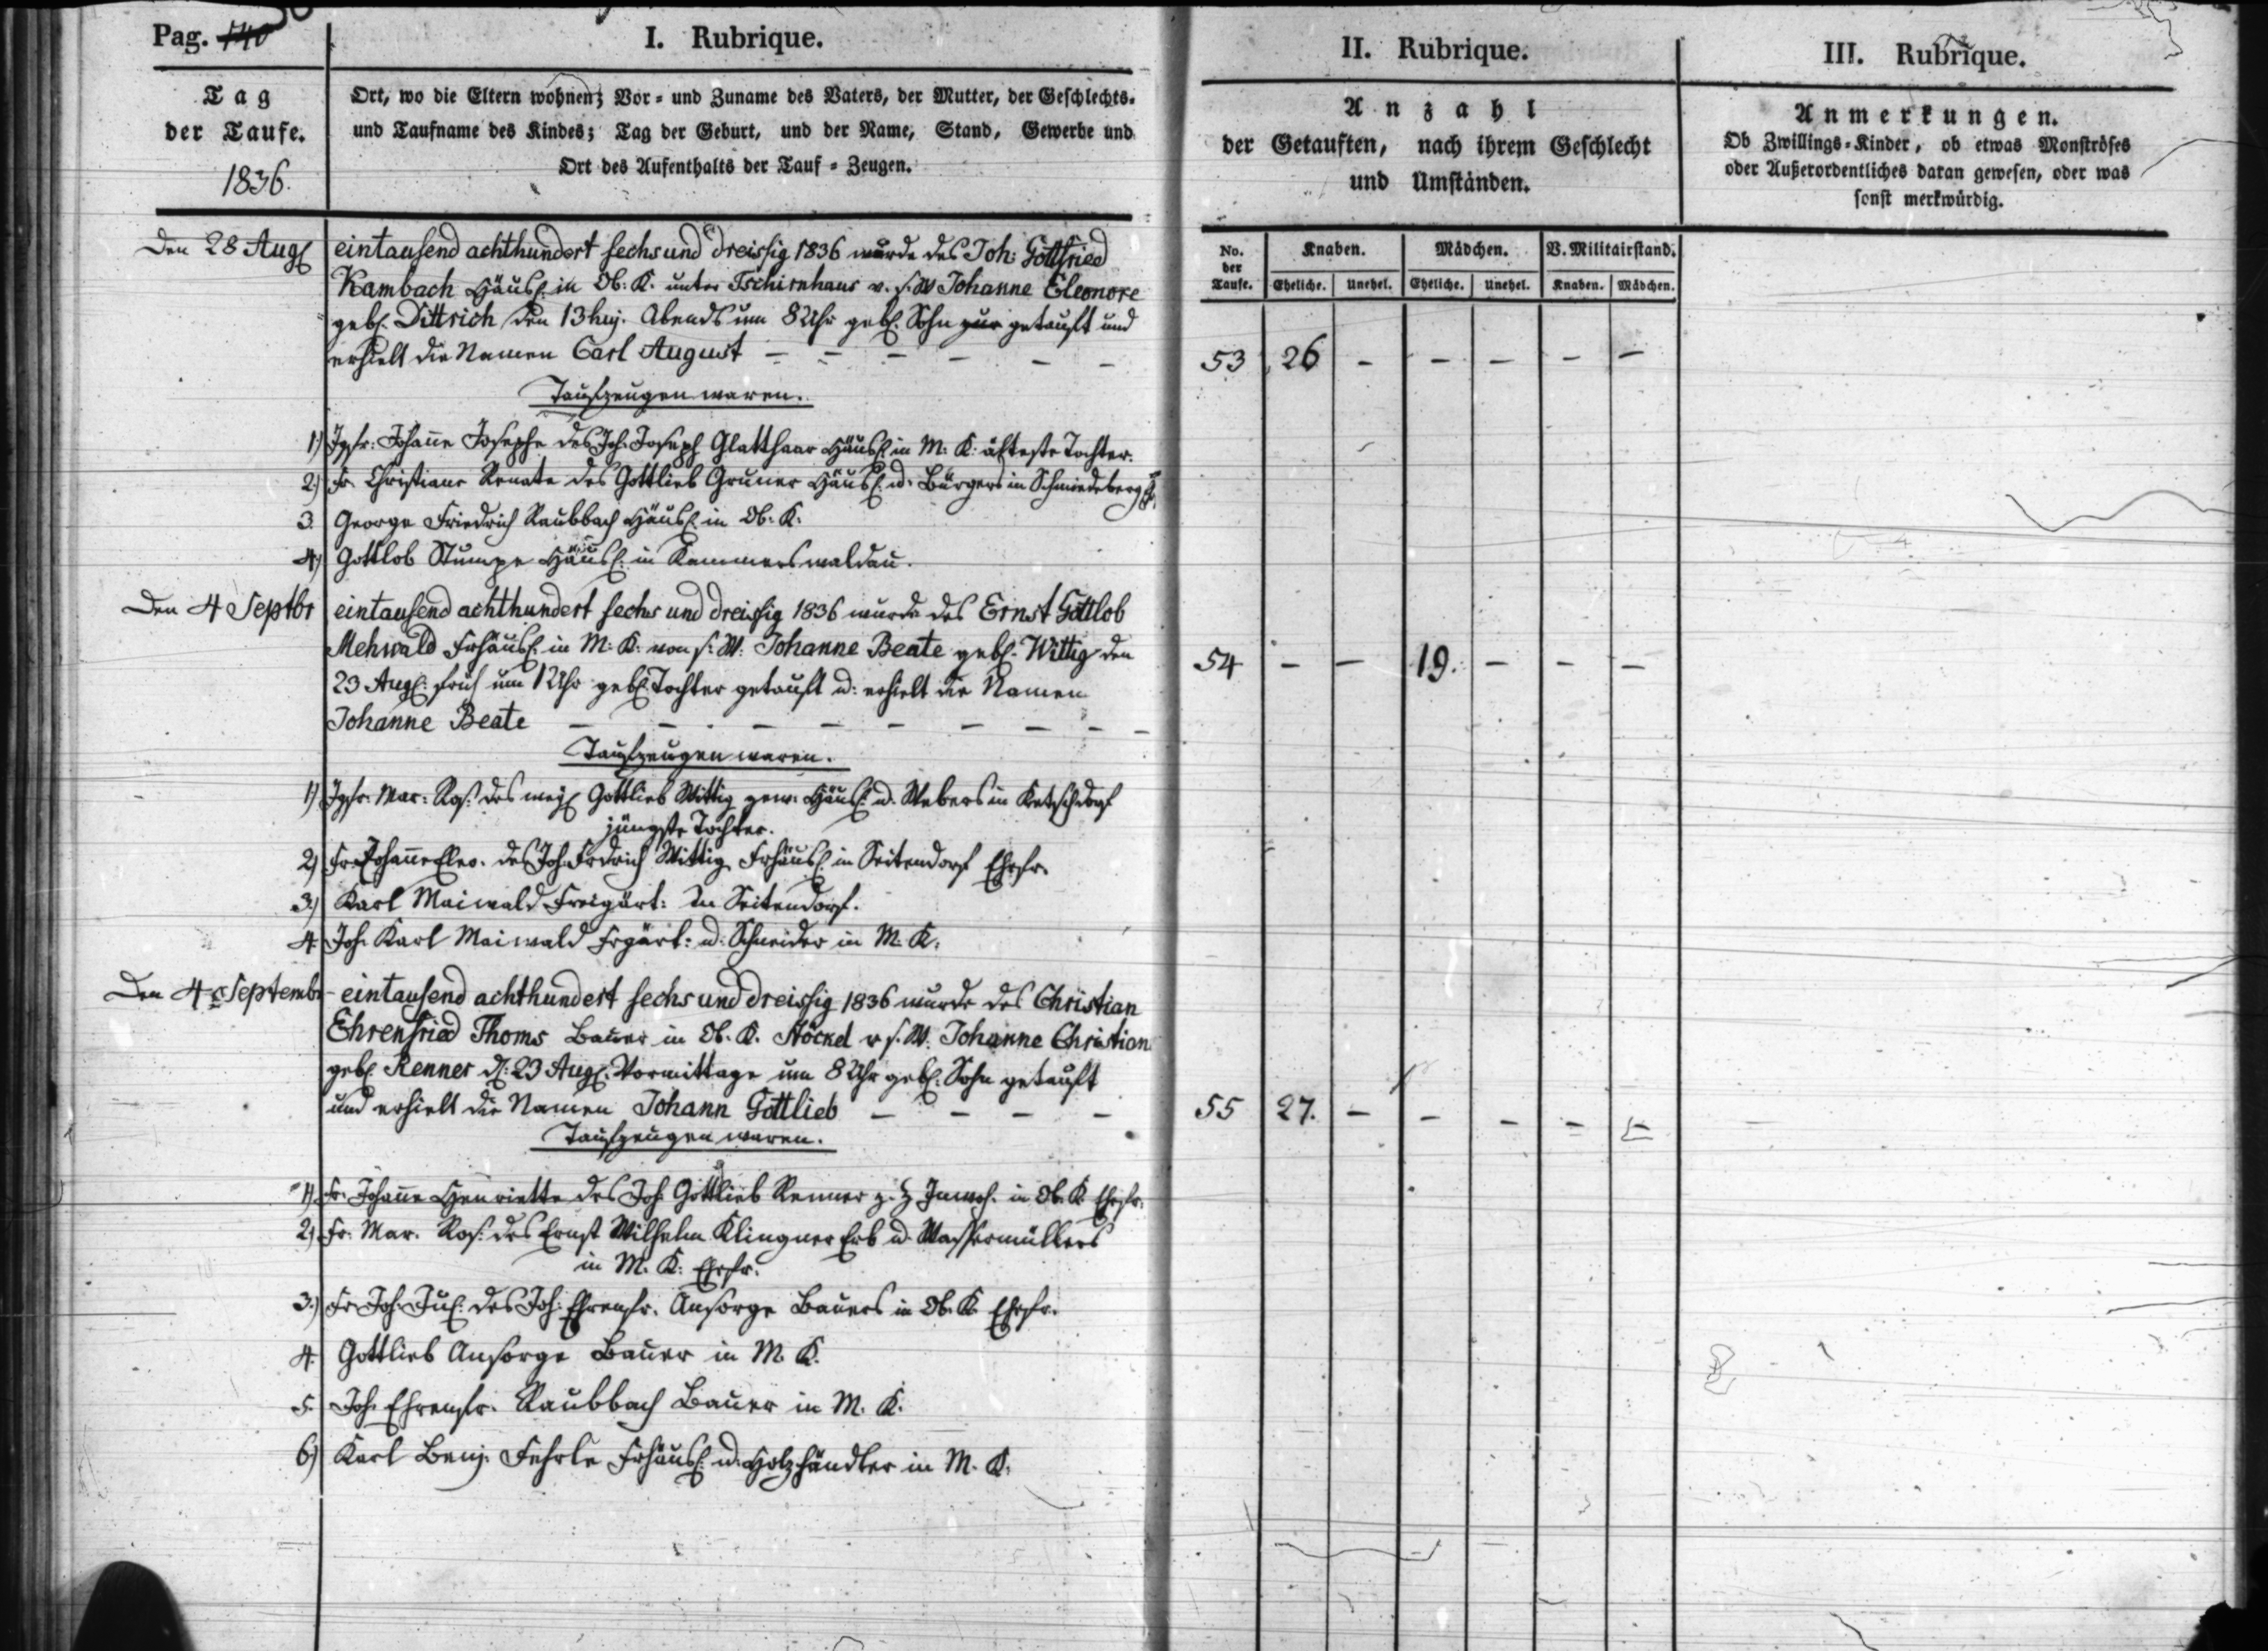 Pag. 140
I. Rubrique.
Tag
der Taufe.
1836.
Ort, wo die Eltern wohnen; Vor- und Zuname des Vaters, der Mutter, der Geschlechts-
und Taufname des Kindes; Tag der Geburt, und der Name, Stand, Gewerbe und
Ort des Aufenthalts der Tauf-Zeugen.
II. Rubrique.
Anzahl
der Getauften, nach ihrem Geschlecht
und Umständen.
III. Rubrique.
Anmerkungen.
Ob Zwillings-Kinder, ob etwas Monströses
oder Außerordentliches daran gewesen, oder was
sonst merkwürdig.
No. der Taufe.
Knaben. Mädchen. V. Militairstand.
Eheliche. Unehel. Eheliche. Unehel. Knaben. Mädchen.
Den 28 Aug. eintausend achthundert sechs und dreissig 1836 wurde des Joh: Gottfried
Kambach Häusl. in Ob: K. unter Tschirnhaus v. s. W Johanne Eleonore
geb. Dittrich den 13 huj. Abends um 8 Uhr geb. Sohn getauft und
erhielt die Namen Carl August – – – – – – 53 26 – – – – –
Taufzeugen waren.
1.) Jgfr: Johañe Josephe des Joh. Joseph Glatthaar Häusl. in M: K: älteste Tochter.
2.) Fr. Christiane Renate des Gottlieb Gruner Häusl. u. Bürgers in Schmiedeberg
3. George Friedrich Raubbach Häusl. in Ob: K.
4.) Gottlob Stumpe Häusl. in Kammerswaldau.
Den 4 Septbr eintausend achthundert sechs und dreissig 1836 wurde des Ernst Gottlob
Mehwald Frhäusl. in M: K. von s. W. Johanne Beate geb. Wittig den
23 Aug. früh um 1 Uhr geb. Tochter getauft u. erhielt die Namen
Johanne Beate – – – – – – – – 54 – – 19. – – –
Taufzeugen waren.
1) Jgfr. Mar. Ros. des weil. Gottlieb Wittig gew. Häusl. u. Webers in Ketschdorf
jüngste Tochter.
2) Fr Johañe Eleo. des Joh. Fridrich Wittig Frhäusl. in Seitendorf Ehefr.
3.) Karl Maiwald Freigärt: in Seitendorf.
4. Joh. Karl Maiwald Frgärt: u. Schneider in M. K.
Den 4 Septembr eintausend achthundert sechs und dreissig 1836 wurde des Christian
Ehrenfried Thoms Bauer in Ob. K. Stöckel v s. W. Johanne Christian
geb. Renner d. 23 Aug. Vormittags um 8 Uhr geb. Sohn getauft
und erhielt die Namen Johann Gottlieb – – – – 55 27. – – – – –
Taufzeugen waren.
1) Fr. Johañe Henriette des Joh Gottlieb Renner z. Z Inwoh. in Ob. K Ehefr.
2) Fr. Mar. Ros. des Ernst Wilhelm Klingner Erb u. Wassermüllers
in M. K. Ehefr.
3.) Fr Joh. Jul. des Joh: Ehrenfr. Ansorge Bauers in Ob. K Ehefr.
4. Gottlieb Ansorge Bauer in M K.
5. Joh Ehrenfr. Raubbach Bauer in M. K.
6) Karl Benj. Fehrle Frhäusl. u. Holzhändler in M. K.